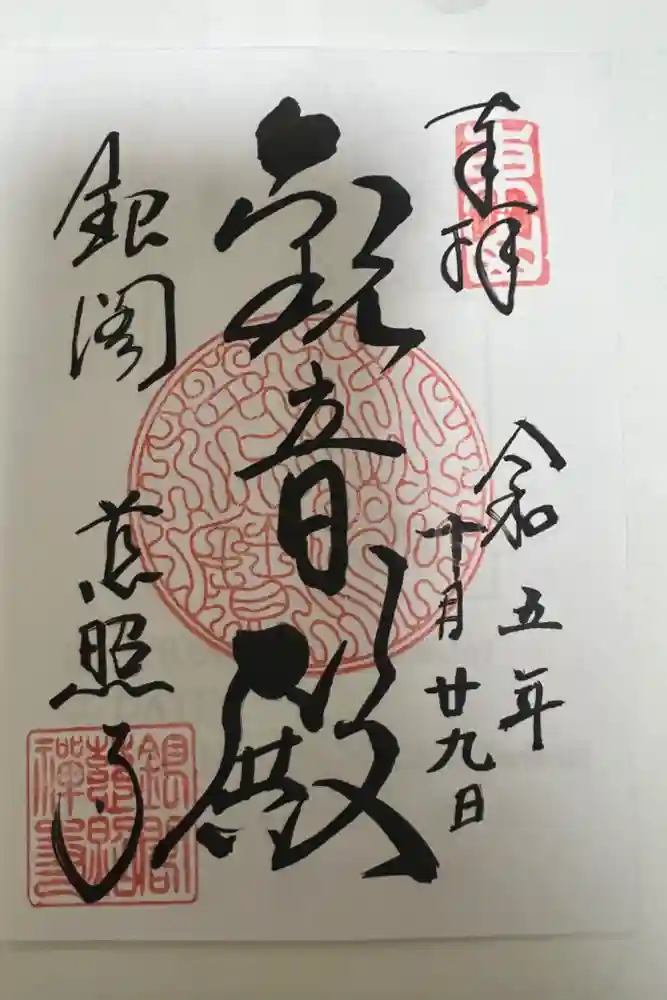 奉拝
東山
令和五年
十月廿九日
観音殿
銀閣
慈照寺
銀閣
慈照
禅寺